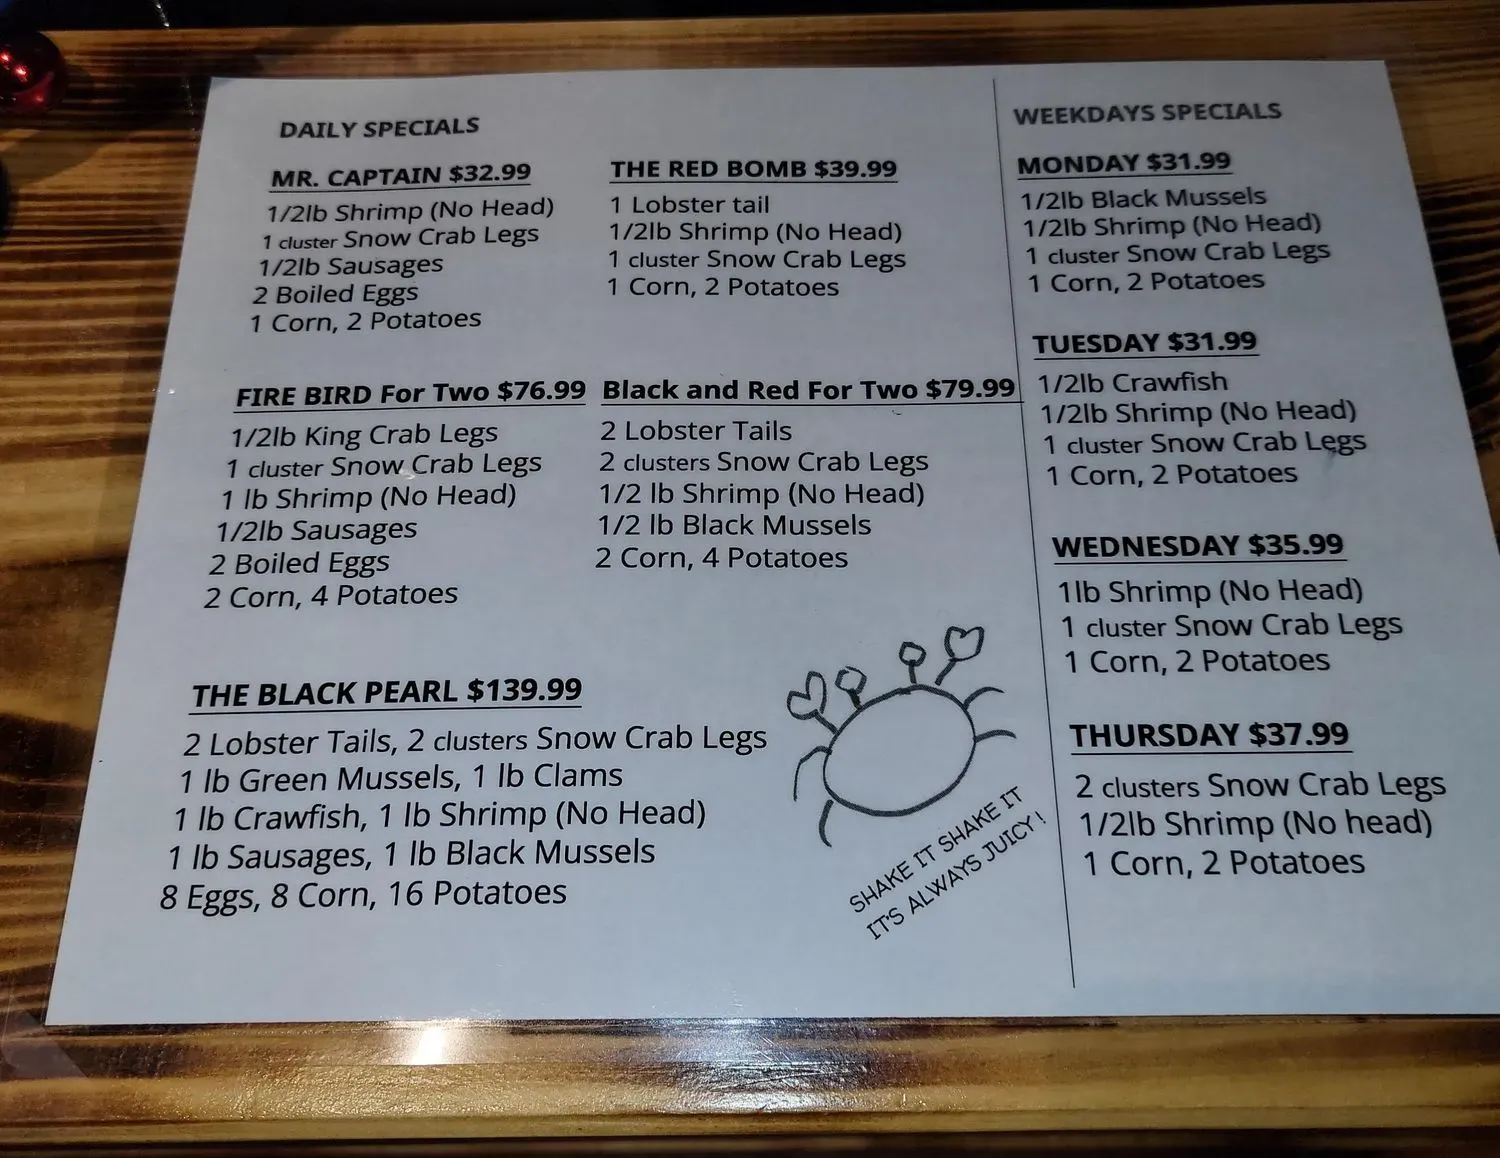 DAILY SPECIALS
MR. CAPTAIN $32.99
1/2lb Shrimp (No Head)
1 cluster Snow Crab Legs
1/2lb Sausages
2 Boiled Eggs
1 Corn, 2 Potatoes
THE RED BOMB $39.99
1 Lobster tail
1/2lb Shrimp (No Head)
1 cluster Snow Crab Legs
1 Corn, 2 Potatoes
FIRE BIRD For Two $76.99
1/2lb King Crab Legs
1 cluster Snow Crab Legs
1 lb Shrimp (No Head)
1/2lb Sausages
2 Boiled Eggs
2 Corn, 4 Potatoes
Black and Red For Two $79.99
2 Lobster Tails
2 clusters Snow Crab Legs
1/2 lb Shrimp (No Head)
1/2 lb Black Mussels
2 Corn, 4 Potatoes
THE BLACK PEARL $139.99
2 Lobster Tails, 2 clusters Snow Crab Legs
1 lb Green Mussels, 1 lb Clams
1 lb Crawfish, 1 lb Shrimp (No Head)
1 lb Sausages, 1 lb Black Mussels
8 Eggs, 8 Corn, 16 Potatoes
SHAKE IT SHAKE IT
IT'S ALWAYS JUICY!
WEEKDAYS SPECIALS
MONDAY $31.99
1/2lb Black Mussels
1/2lb Shrimp (No Head)
1 cluster Snow Crab Legs
1 Corn, 2 Potatoes
TUESDAY $31.99
1/2lb Crawfish
1/2lb Shrimp (No Head)
1 cluster Snow Crab Legs
1 Corn, 2 Potatoes
WEDNESDAY $35.99
1lb Shrimp (No Head)
1 cluster Snow Crab Legs
1 Corn, 2 Potatoes
THURSDAY $37.99
2 clusters Snow Crab Legs
1/2lb Shrimp (No head)
1 Corn, 2 Potatoes